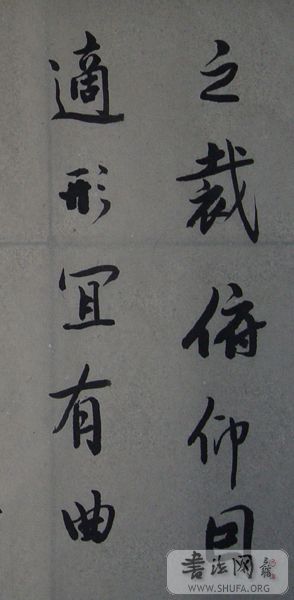 之裁俯仰囙
適形冝有曲
書法网
WWW.SHUFA.ORG